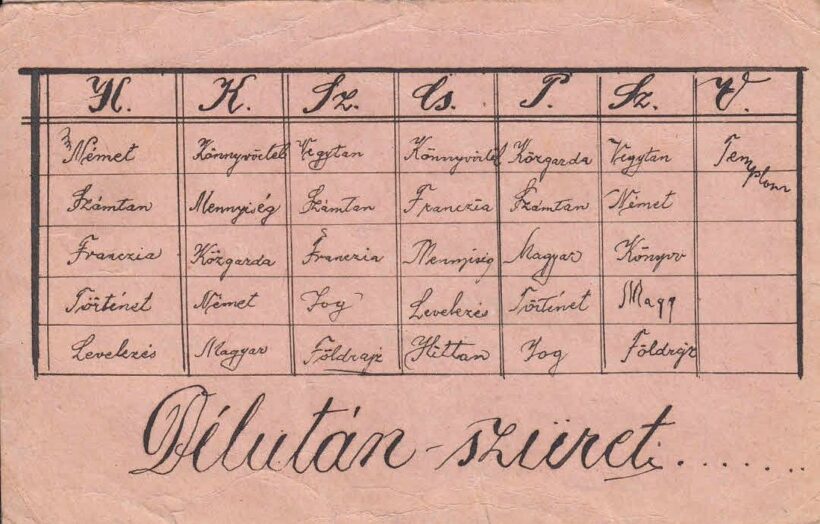 H. K. Sz. Cs. P. Sz. V.
Német Könnyvvitel Vegytan Könnyvvitel Közgarda Vegytan Templom
Számtan Mennyiség Számtan Franczia Számtan Német
Franczia Közgarda Franczia Mennyiség Magyar Könyvv
Történet Német Jog Levelezés Történet Magy
Levelezés Magyar Földrajz Hittan Jog Földrajz
Délután - szüret.......